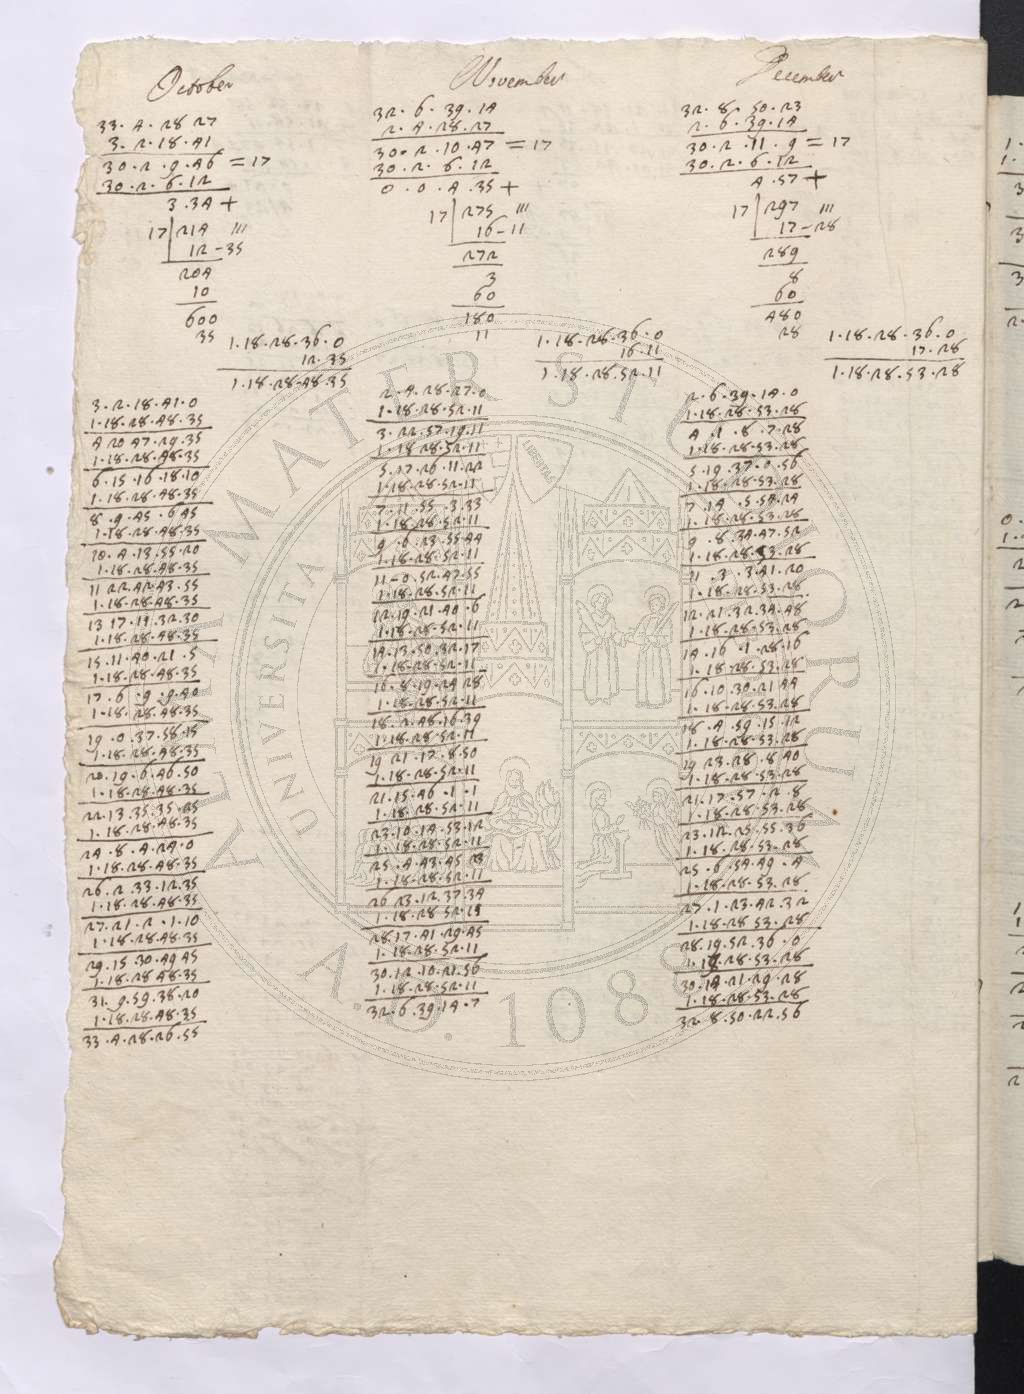 October
33.4.28 27
3.2.18.41
30.2.9.46 = 17
30.2.6.12
3.34 +
17 214 '''
12-35
204
10
600
35
1.18.28.36.0
12.35
1.18.28.48.35
3.2.18.41.0
1.18.28.48.35
4 20 47.29.35
1.18.28.48.35
6.15.16.18.10
1.18.28.48.35
8.9.45.6 45
1.18.28.48.35
10.4.13.55.20
1.18.28.48.35
11 22.42.43.55
1.18.28.48.35
13 17.11.32.30
1.18.28.48.35
15.11.40.21.5
1.18.28.48.35
17.6.9.9.40
1.18.28.48.35
19.0.37.58.15
1.18.28.48.35
20.19.6.46.50
1.18.28.48.35
22.13.35.35.25
1.18.28.48.35
24.8.4.24.0
1.18.28.48.35
26.2 33.12.35
1.18.28.48.35
27.21.2.1.10
1.18.28.48.35
29.15 30.49 45
1.18.28 48.35
31.9.59.38.20
1.18.28.48.35
33.4.28.26.55
November
32.6.39.14
2.4.28.27
30.2.10.47 = 17
30.2.6.12
0.0.4.35 +
17 275 '''
16-11
272
3
60
180
11
1.18.28.36.0
16.11
1.18.28.52.11
2.4.28.27.0
1.18.28.52.11
3.22.57.19.11
1.18 28.52.11
5.17.26.11.22
1.18.28.52.11
7.11.55.3.33
1.18.28.52.11
9.6.23.55 44
1.18.28.52.11
11-0.52.47.55
1.18.28.52.11
12.19.21.40.6
1.18.28.52.11
14.13.50.32.17
1.18.28.52.11
16.8.19.24 28
1.18.28.52.11
18.2.48.16.39
1.18.28.52.11
19 21.17.8.50
1.18.28.52.11
21.15.46.1.1
1.18.28.52.11
23.10.14.53.12
1.18.28.52.11
25.4.43.45 23
1.18.28.52.11
26 23.12.37.34
1.18.28 52.11
28.17.41 29.45
1.18.28.52.11
30.12.10.21.56
1.18.28.52.11
32.6.39.14.7
December
32.8.50.23
2.6.39.14
30.2.11.9 = 17
30.2.6.12
4.57 +
17 297 '''
17-28
289
8
60
480
28
1.18.28.36.0
17.28
1.18.28.53.28
2.6.39.14.0
1.18.28.53.28
4.1.8.7.28
1.18.28.53.28
5.19.37.0.56
1.18.28.53.28
7.14.5.54.24
1.18.28.53.28
9.8.34.47.52
1.18.28.53.28
11.3.3.41.20
1.18.28.53.28
12.21.32.34.48
1.18.28.53.28
14.16.1.28.16
1.18.28.53.28
16.10.30.21 44
1.18.28.53.28
18.4.59.15.12
1.18.28.53.28
19 23.28.8 40
1.18.28.53.28
21.17.57.2.8
1.18.28.53.28
23.12.25.55.36
1.18.28.53.28
25.6.54.49.4
1.18.28.53.28
27.1.23.42.32
1.18.28 53.28
28.19.52.36.0
1.18.28.53.28
30.14.21.29.28
1.18.28.53.28
32.8.50.22.56
ALMA MATER STUDIORUM
UNIVERSITA
A.D. 1088